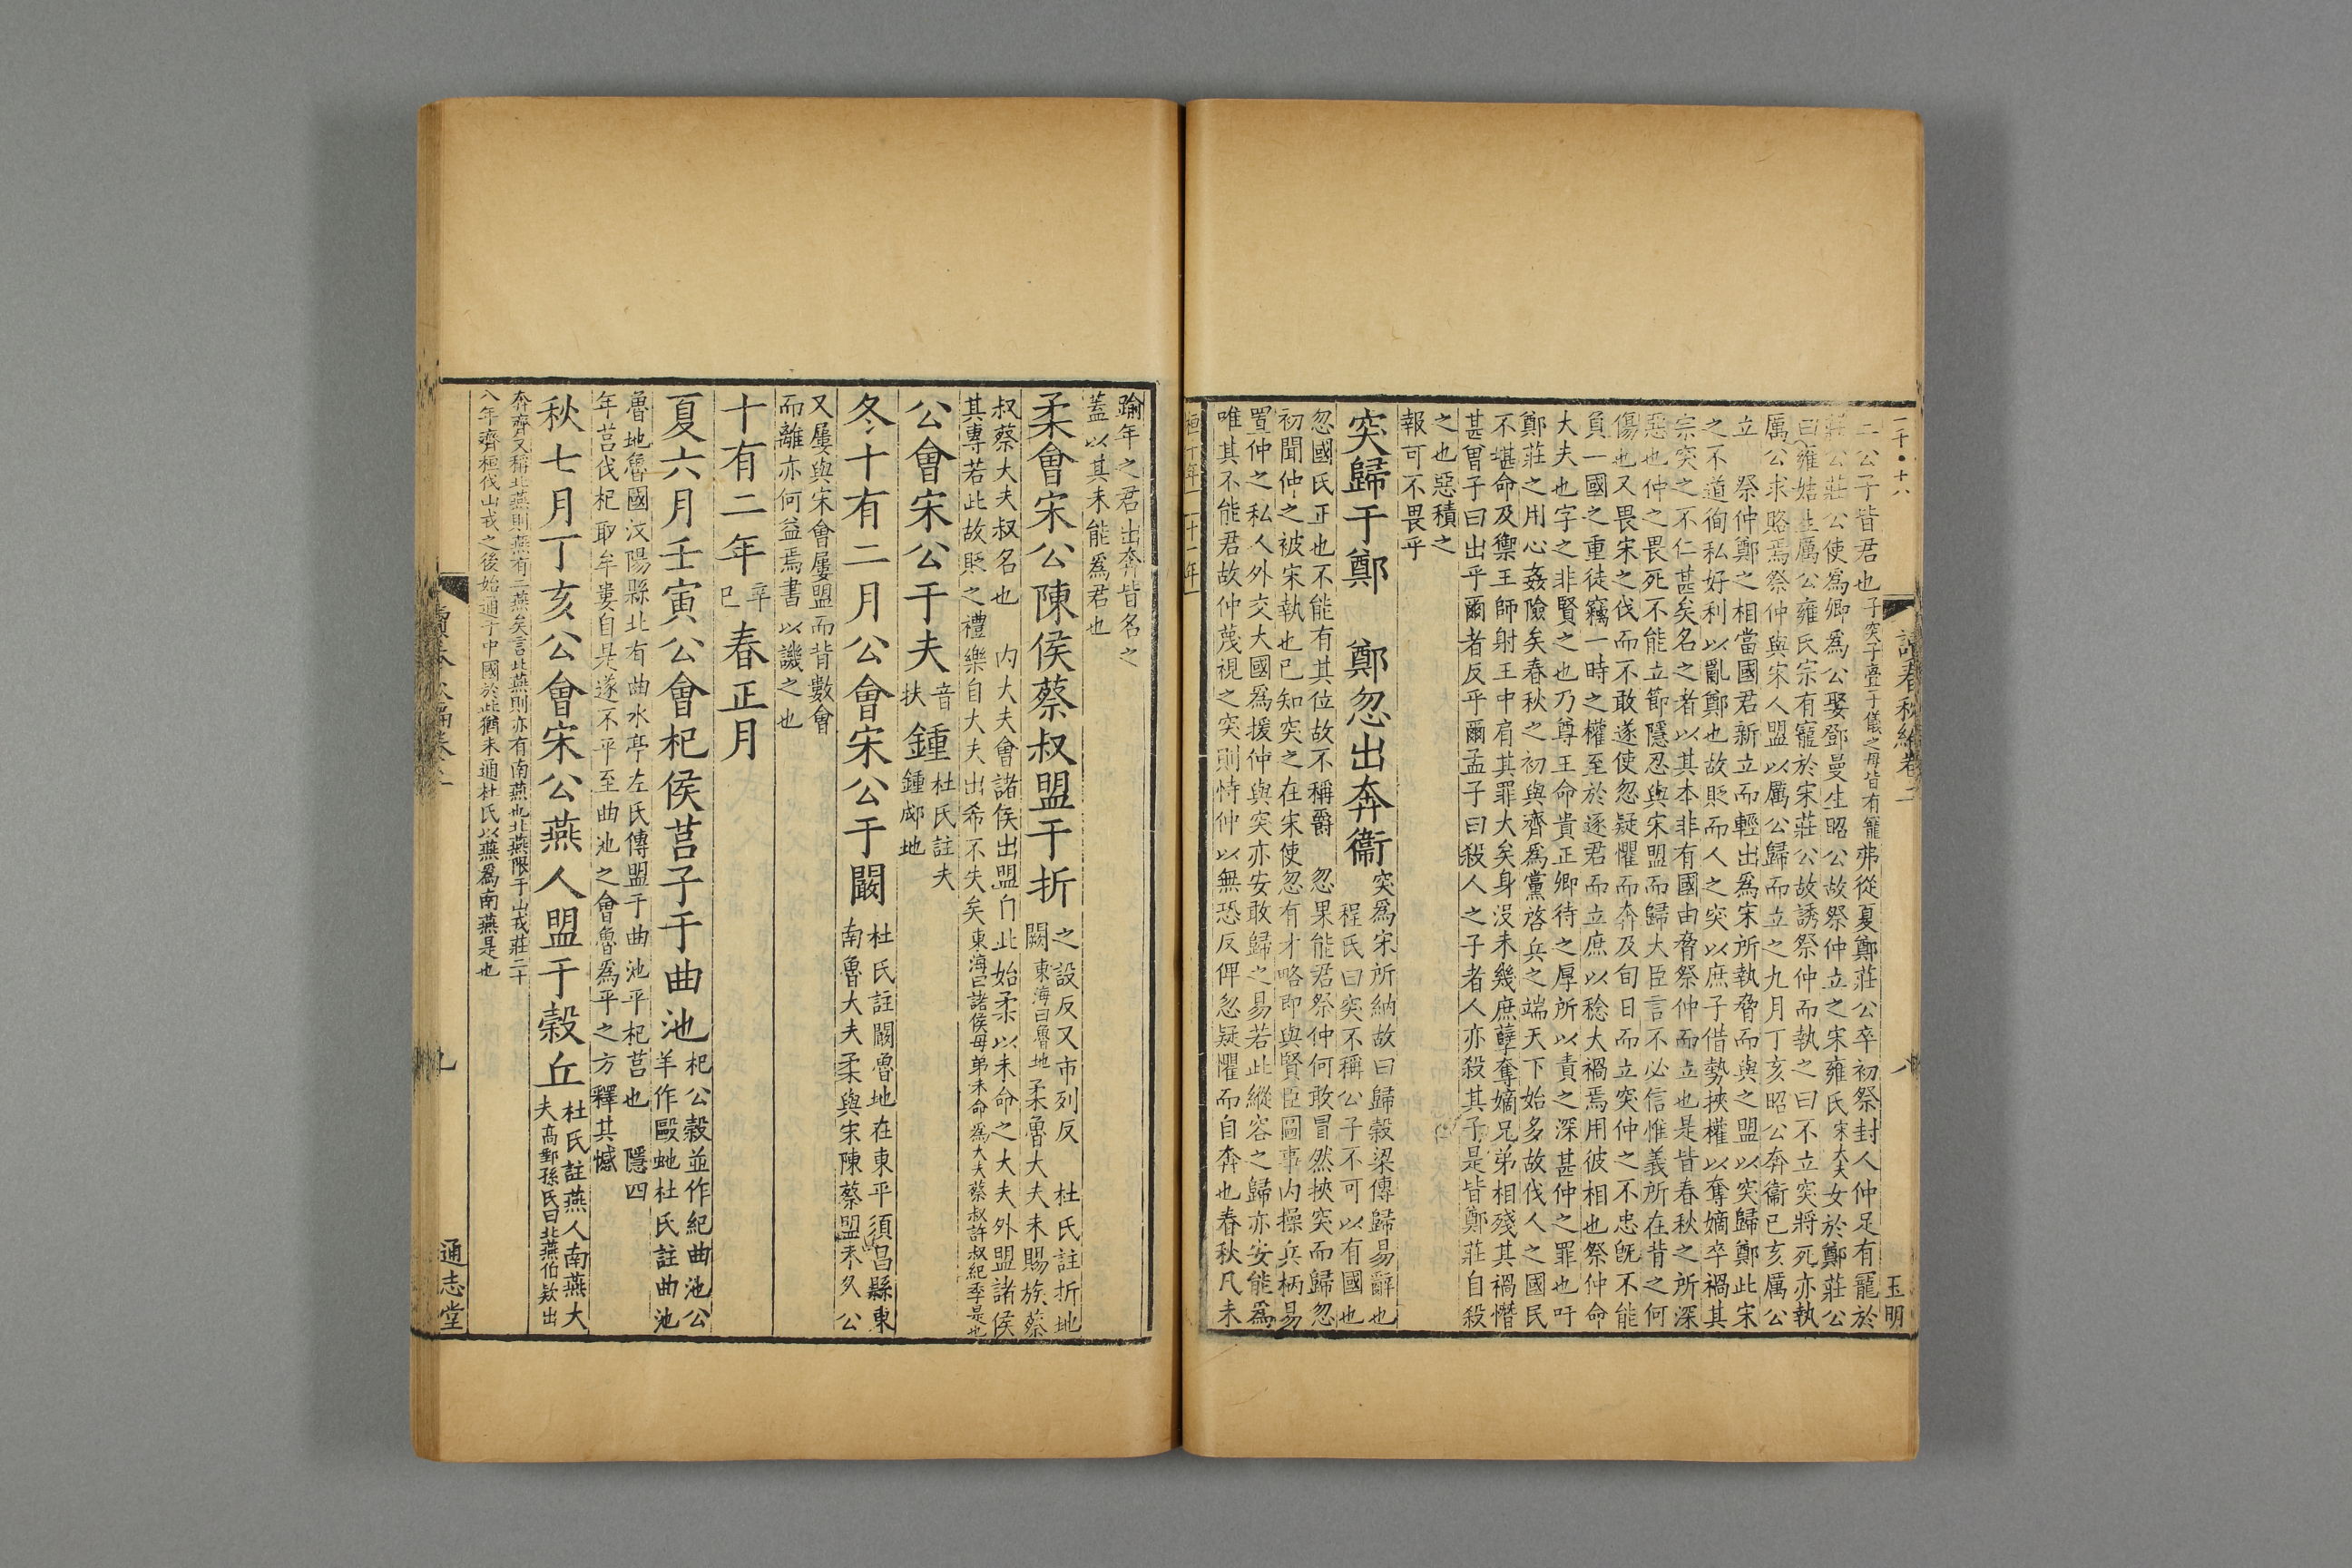 二公子皆君也子突子亹子儀之母皆有寵弗從夏鄭莊公卒初祭封人仲足有寵於
莊公莊公使為卿為公娶鄧曼生昭公故祭仲立之宋雍氏宋大夫女於鄭莊公
曰雍姞生厲公雍氏宗有寵於宋莊公故誘祭仲而執之曰不立突將死亦執
厲公求賂焉祭仲與宋人盟以厲公歸而立之九月丁亥昭公奔衞已亥厲公
立　祭仲鄭之相當國君新立而輕出為宋所執脅而與之盟以突歸鄭此宋
之不道徇私好利以亂鄭也故貶而人之突以庶子借勢挾權以奪嫡卒禍其
宗突之不仁甚矣名之者以其本非有國由脅祭仲而立也是皆春秋之所深
惡也仲之畏死不能立節隱忍與宋盟而歸大臣言不必信惟義所在背之何
傷也又畏宋之伐而不敢遂使忽疑懼而奔及旬日而立突仲之不忠旣不能
負一國之重徒竊一時之權至於逐君而立庶以稔大禍焉用彼相也祭仲命
大夫也字之非賢之也乃尊王命貴正卿待之厚所以責之深甚仲之罪也吁
鄭莊之用心姦險矣春秋之初與齊為黨啓兵之端天下始多故伐人之國民
不堪命及禦王師射王中肩其罪大矣身沒未幾庶孽奪嫡兄弟相殘其禍憯
甚曽子曰出乎爾者反乎爾孟子曰殺人之子者人亦殺其子是皆鄭莊自殺
之也惡積之
報可不畏乎
突歸于鄭　鄭忽出奔衞突為宋所納故曰歸穀梁傳歸易辭也
程氏曰突不稱公子不可以有國也
忽國氏正也不能有其位故不稱爵　忽果能君祭仲何敢冒然挾突而歸忽
初聞仲之被宋執也已知突之在宋使忽有才略即與賢臣圖事內操兵柄易
置仲之私人外交大國為援仲與突亦安敢歸之易若此縱容之歸亦安能為
唯其不能君故仲蔑視之突則恃仲以無恐反俾忽疑懼而自奔也春秋凡未
桓十年　十一年
二千•十八
讀春秋編卷二
八
玉明
踰年之君出奔皆名之
蓋以其未能為君也
柔會宋公陳侯蔡叔盟于折之設反又市列反　杜氏註折地
闕東海曰魯地柔魯大夫未賜族蔡
叔蔡大夫叔名也　內大夫會諸侯出盟自此始柔以未命之大夫外盟諸侯
其專若此故貶之禮樂自大夫出希不失矣東海曰諸侯母弟未命為大夫蔡叔許叔紀季是也
公會宋公于夫音扶鍾杜氏註夫鍾郕地
冬十有二月公會宋公于闞杜氏註闞魯地在東平須昌縣東
南魯大夫柔與宋陳蔡盟未久公
又屢與宋會屢盟而背數會
而離亦何益焉書以譏之也
十有二年辛巳春正月
夏六月壬寅公會杞侯莒子于曲池杞公穀並作紀曲池公
羊作毆虵杜氏註曲池
魯地魯國汶陽縣北有曲水亭左氏傳盟于曲池平杞莒也　隱四
年莒伐杞取牟婁自是遂不平至曲池之會魯為平之方釋其憾
秋七月丁亥公會宋公燕人盟于穀丘杜氏註燕人南燕大
夫高郵孫氏曰北燕伯欵出
奔齊又稱北燕則燕有二燕矣言此燕則亦有南燕也北燕限于山戎莊二十
八年齊桓伐山戎之後始通于中國於此猶未通杜氏以燕為南燕是也
九
通志堂